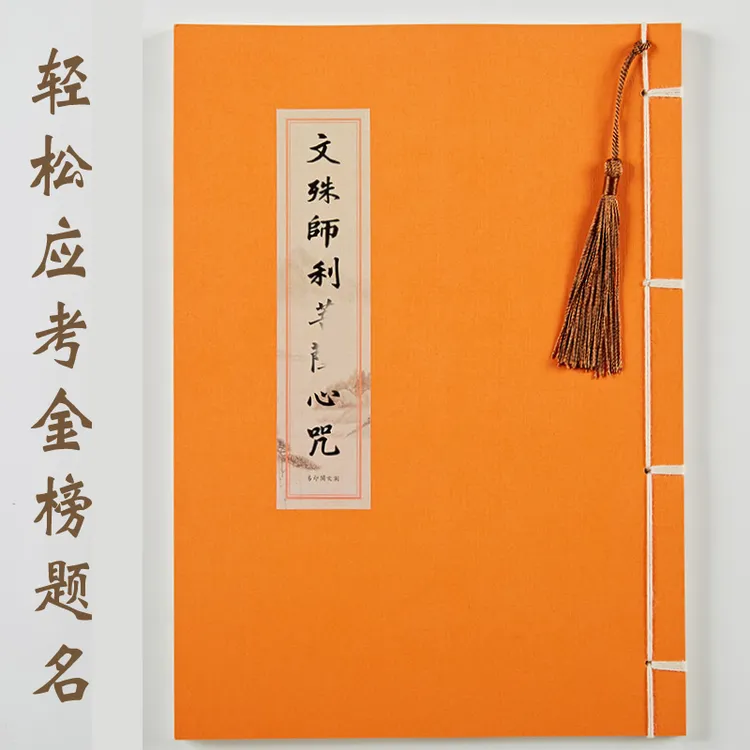 轻松应考金榜题名
文殊師利心咒